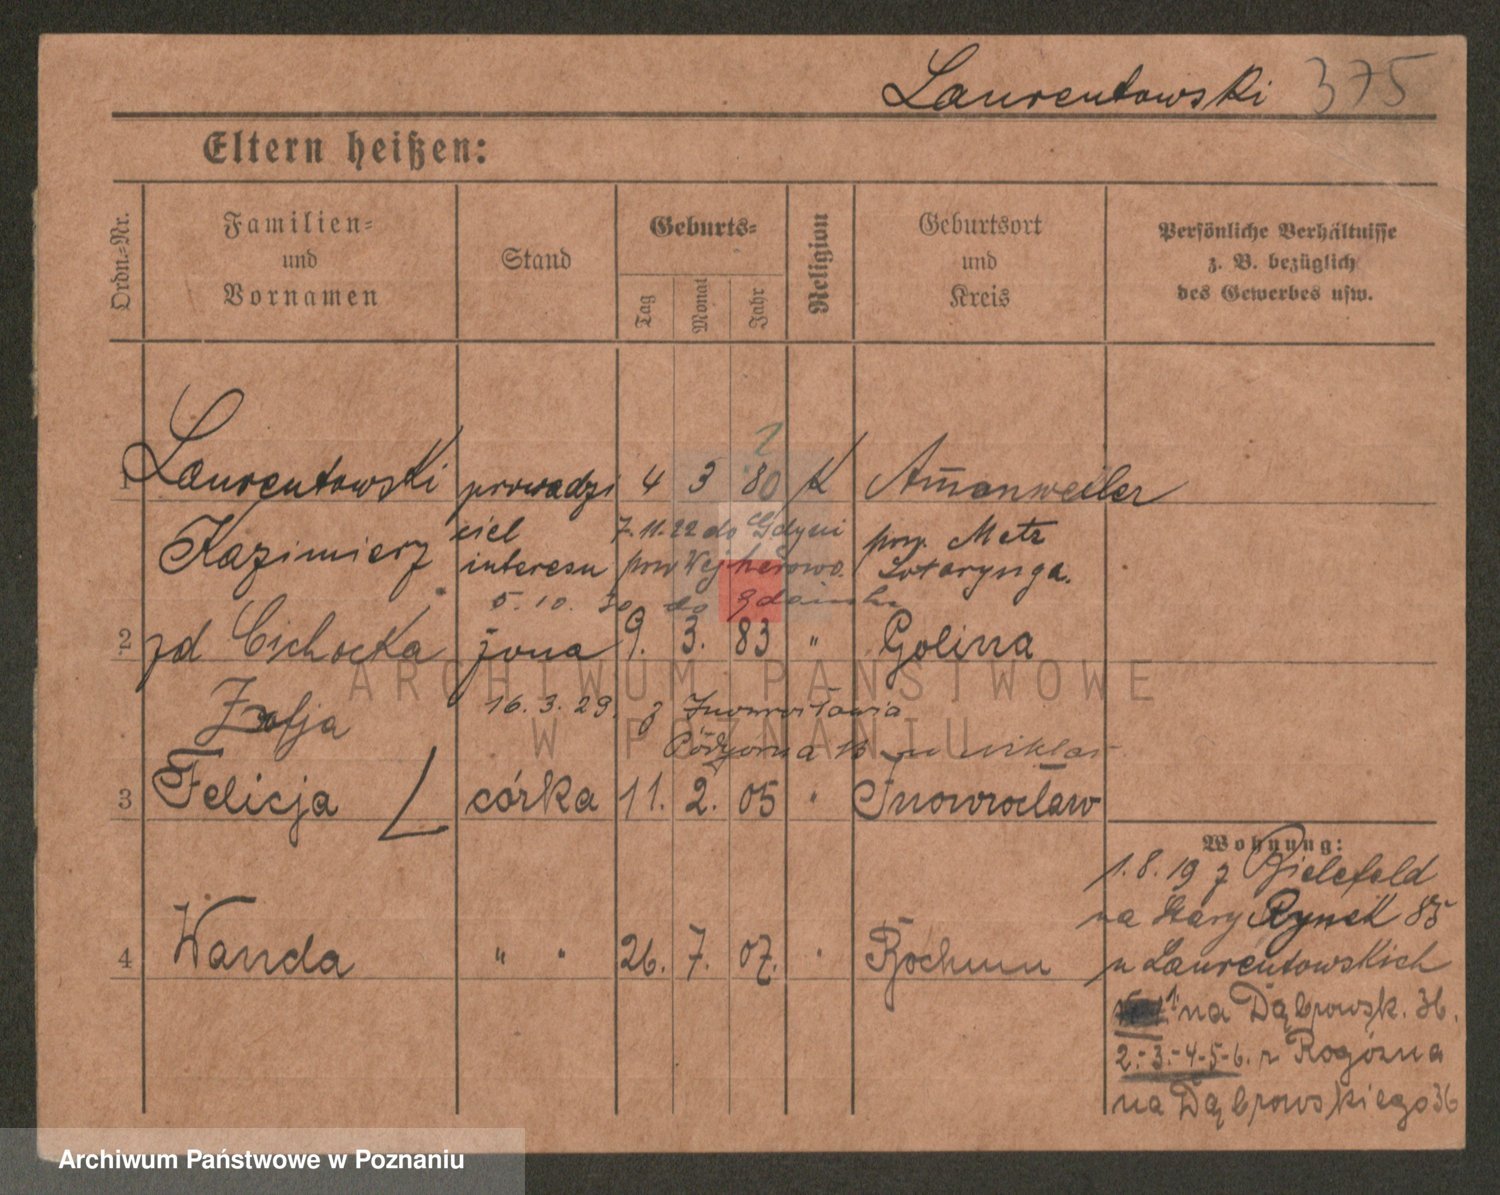 Laurentowski 375
Eltern heißen:
Ordn.-Nr.
Familien-
und
Vornamen
Stand
Geburts-
Tag
Monat
Jahr
Religion
Geburtsort
und
Kreis
Persönliche Verhältnisse
z. B. bezüglich
des Gewerbes usw.
1 Laurentowski prowadzi 4 3 80 K Amanweiler
Kazimierz ciel 7.11.22 do Gdyni pow. Metz
interesu pow Wejherowo. Lotarynga.
5.10.30 do Gdańska
2 zd Cichocka żona 9. 3. 83 " Golina
Zofja 16.3.29. z Inowrocławia
13 u
3 Felicja córka 11. 2. 05 " Inowrocław
Wohnung:
1.8.19 z Bielefeld
na Stary Rynek 85
4 Wanda " " 26. 7. 07. " Bochum
u Laurentowskich
1. na Dąbrowsk. 36.
2.-3.-4-5-6. z Rogoźna
na Dąbrowskiego 36
ARCHIWUM PAŃSTWOWE
W POZNANIU
Archiwum Państwowe w Poznaniu